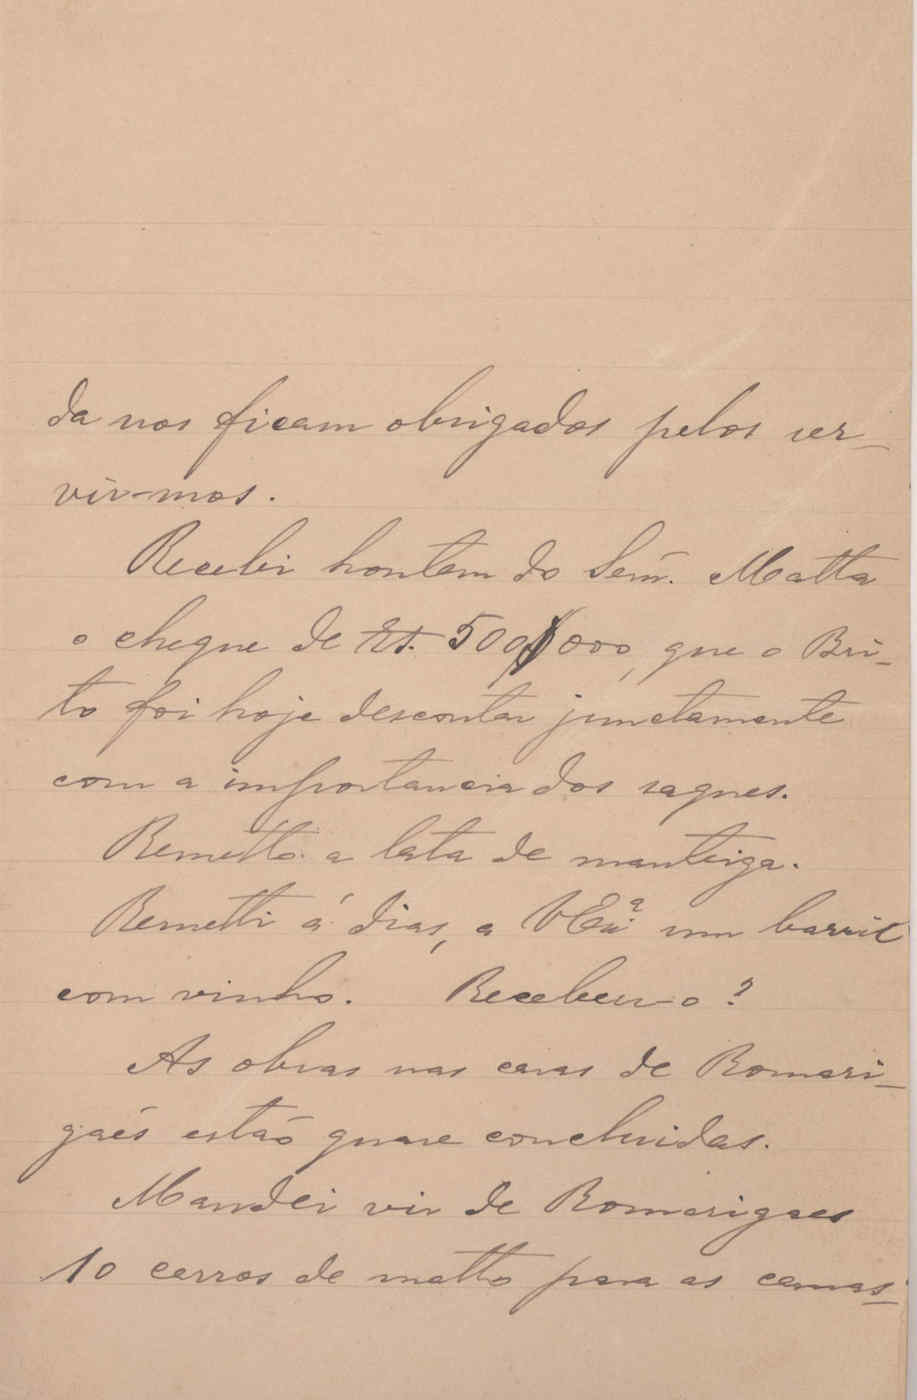 da nos ficam obrigados pelos ser-
vir-mos.
Recebi hontem do Senr. Matta
o cheque de Rs. 500$000, que o Bri-
to foi hoje descontar junctamente
com a importancia dos saques.
Remetto a lata de manteiga.
Remetti á dias, a VExª um barril
com vinho. Recebeu-o?
As obras nas casas de Romari-
gaés estaõ quase concluidas.
Mandei vir de Romarigaes
10 carros de matto para as camas-